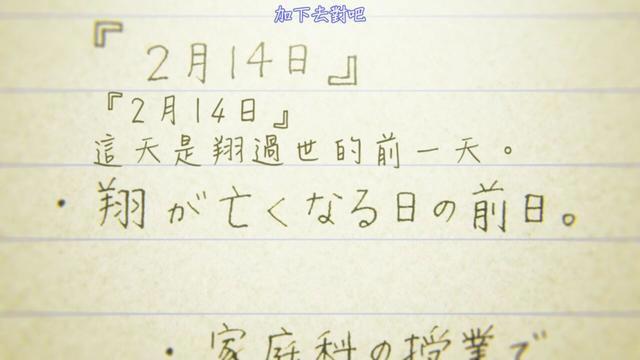 加下去對吧
『2月14日』
『2月14日』
這天是翔過世的前一天。
・翔が亡くなる日の前日。
・家庭科の授業で